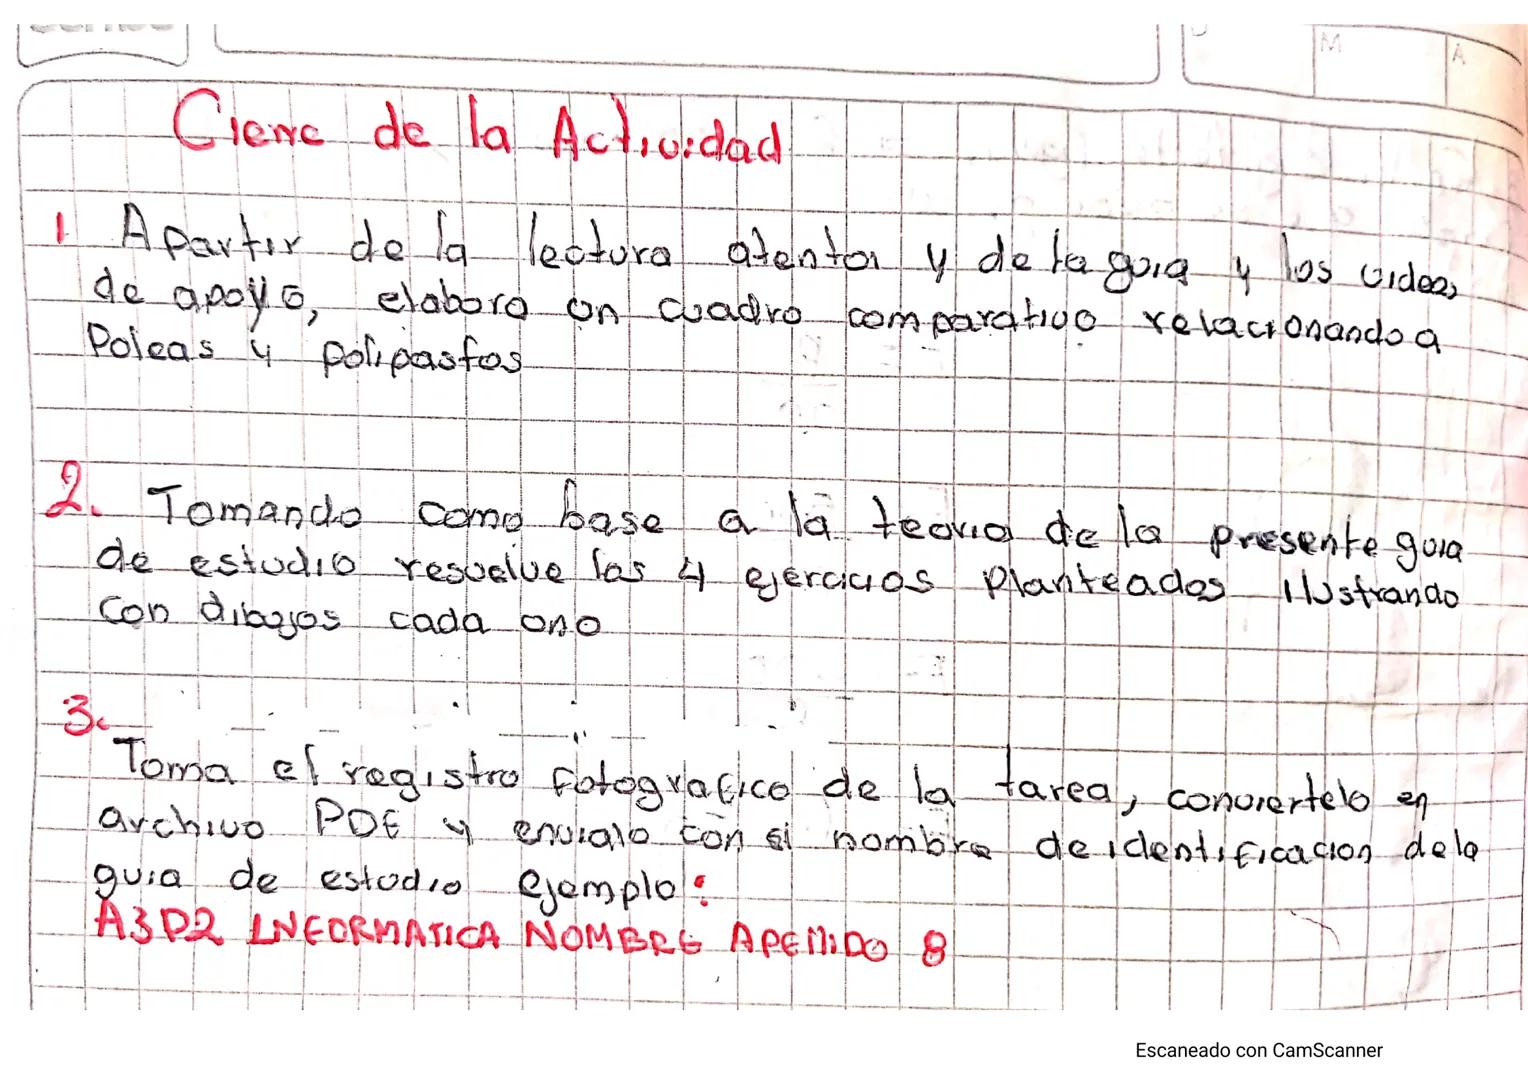 M
A
Cierre de la Actividad
1 A partir de la lectura atenta y de la guia y los videos
de apoyo, elabora un cuadro comparativo relacionando a
Poleas y polipastos
2. Tomando como base a la teoria de la presente guia
de estudio resuelve las 4 ejercicios Planteados Ilustrando
con dibujos cada uno
3.
Toma el registro fotografico de la tarea, conviertelo en
archivo PDF y envialo con si nombre de identificacion de la
guia de estudio ejemplo:
A3P2 INFORMATICA NOMBRE APELLIDO 8
Escaneado con CamScanner